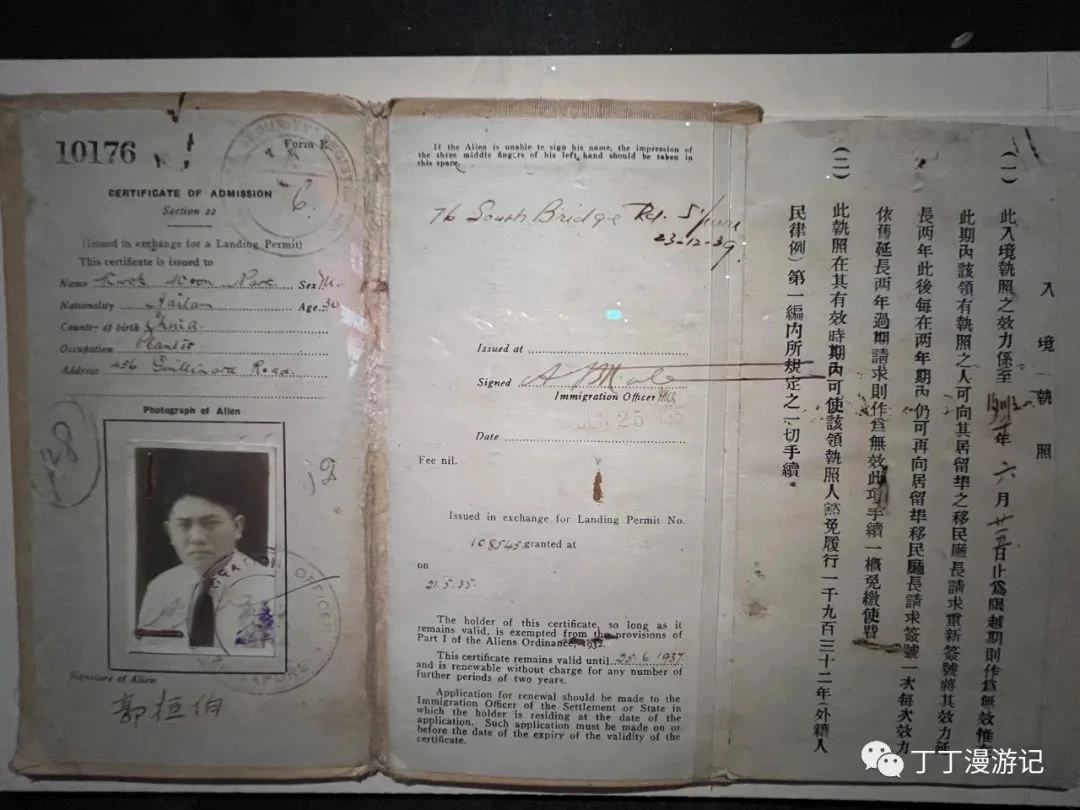 10176
Form E
6.
CERTIFICATE OF ADMISSION
Section 22
(Issued in exchange for a Landing Permit)
This certificate is issued to
Name Kwok Woon Pak Sex M.
Nationality Hailam Age 30
Country of birth China.
Occupation Planter
Address 456 Road.
Photograph of Alien
128
SINGAPORE
Signature of Alien
郭桓伯
If the Alien is unable to sign his name, the impression of
the three middle fingers of his left hand should be taken in
this space.
76 South Bridge Rd. S'pore
23-12-39.
Issued at
Signed
Immigration Officer
JUN 25 1935
Date
Fee nil.
Issued in exchange for Landing Permit No.
108545 granted at
on
21.5.35.
The holder of this certificate, so long as it
remains valid, is exempted from the provisions of
Part I of the Aliens Ordinance, 1932.
This certificate remains valid until 25.6.1937
and is renewable without charge for any number of
further periods of two years.
Application for renewal should be made to the
Immigration Officer of the Settlement or State in
which the holder is residing at the date of the
application. Such application must be made on or
before the date of the expiry of the validity of the
certificate.
入境執照
(一) 此入境執照之效力係至 年六月廿五日止爲限越期則作爲無效惟在
此期內該領有執照之人可向其居留埠之移民廳長請求重新簽號將其效力延
長两年此後每在两年期內仍可再向居留埠移民廳長請求簽號一次每次效力
依舊延長两年過期請求則作爲無效此項手續一概免繳使費
(二) 此執照在其有效時期內可使該領執照人豁免履行一千九百三十二年(外籍人
民律例)第一編內所規定之一切手續。
丁丁漫游记